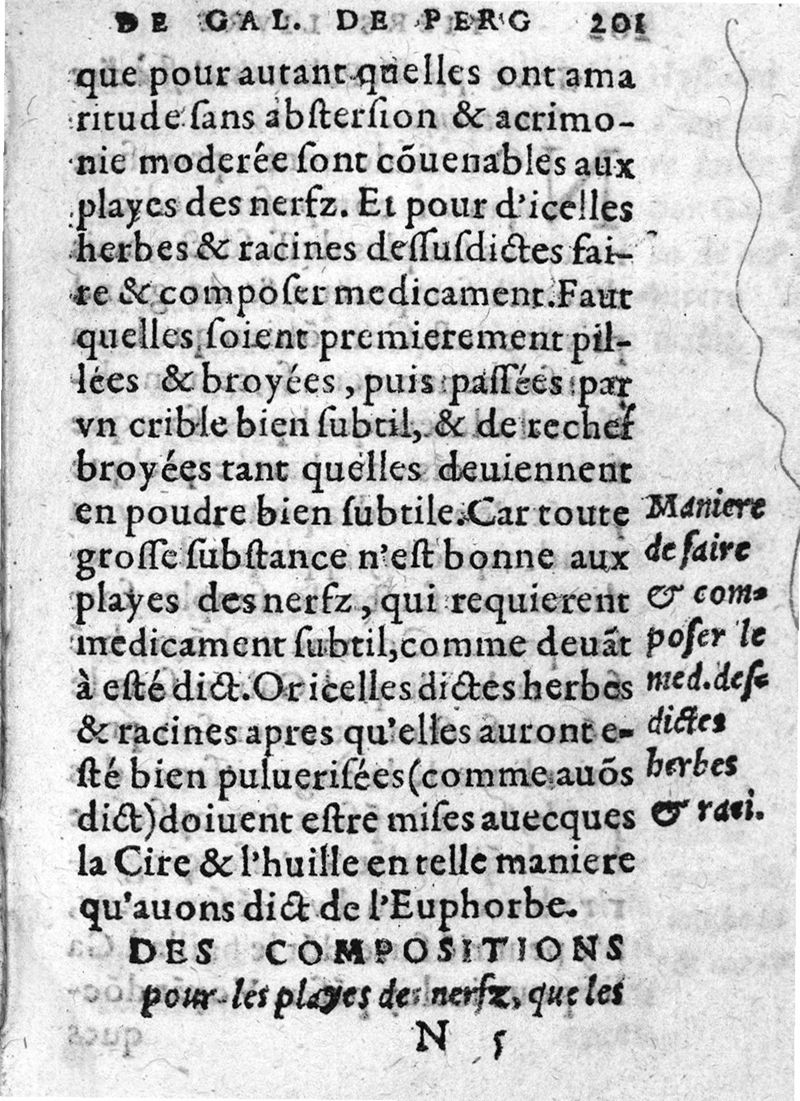 DE GAL. DE PERG 201
que pour autant quelles ont ama
ritude ſans abſterſion & acrimo-
nie moderée ſont cõuenables aux
playes des nerfz. Et pour d'icelles
herbes & racines deſſuſdictes fai-
re & compoſer medicament. Faut
quelles ſoient premierement pil-
lées & broyées, puis paſſées par
vn crible bien ſubtil, & de rechef
broyées tant quelles deuiennent
en poudre bien ſubtile. Car toute
groſſe ſubſtance n'eſt bonne aux
playes des nerfz, qui requierent
medicament ſubtil, comme deuãt
à eſté dict. Or icelles dictes herbes
& racines apres qu'elles auront e-
ſté bien pulueriſées (comme auõs
dict) doiuent eſtre miſes auecques
la Cire & l'huille en telle maniere
qu'auons dict de l'Euphorbe.
Maniere
de faire
& com-
poſer le
med. deſ-
dictes
herbes
& raci.
DES COMPOSITIONS
pour les playes des nerfz, que les
N 5